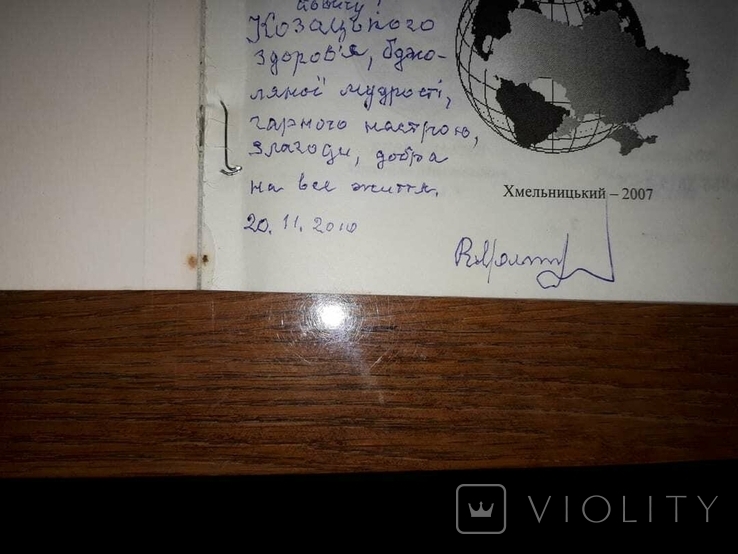 Козацького
здоров'я, бджо-
ляної мудрості,
гарного настрою,
злагоди, добра
на все життя.
20.11.2010
Хмельницький – 2007
VIOLITY